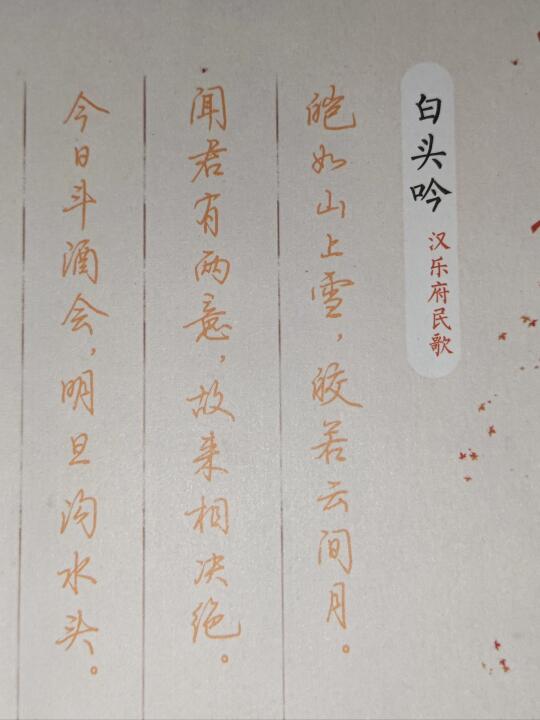 白头吟
汉乐府民歌
皑如山上雪，皎若云间月。
闻君有两意，故来相决绝。
今日斗酒会，明旦沟水头。